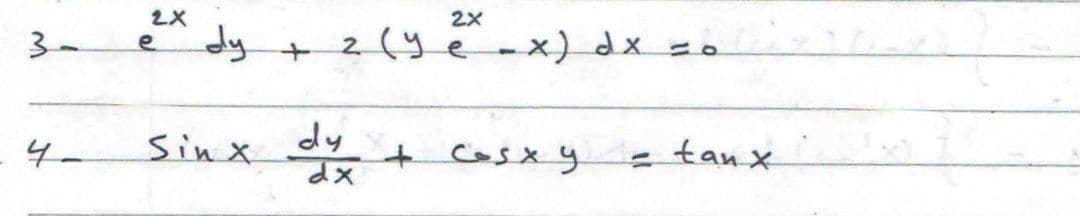 3- e^{2x} dy + 2 (y e^{2x} - x) dx = 0
4- sin x dy/dx + cos x y = tan x